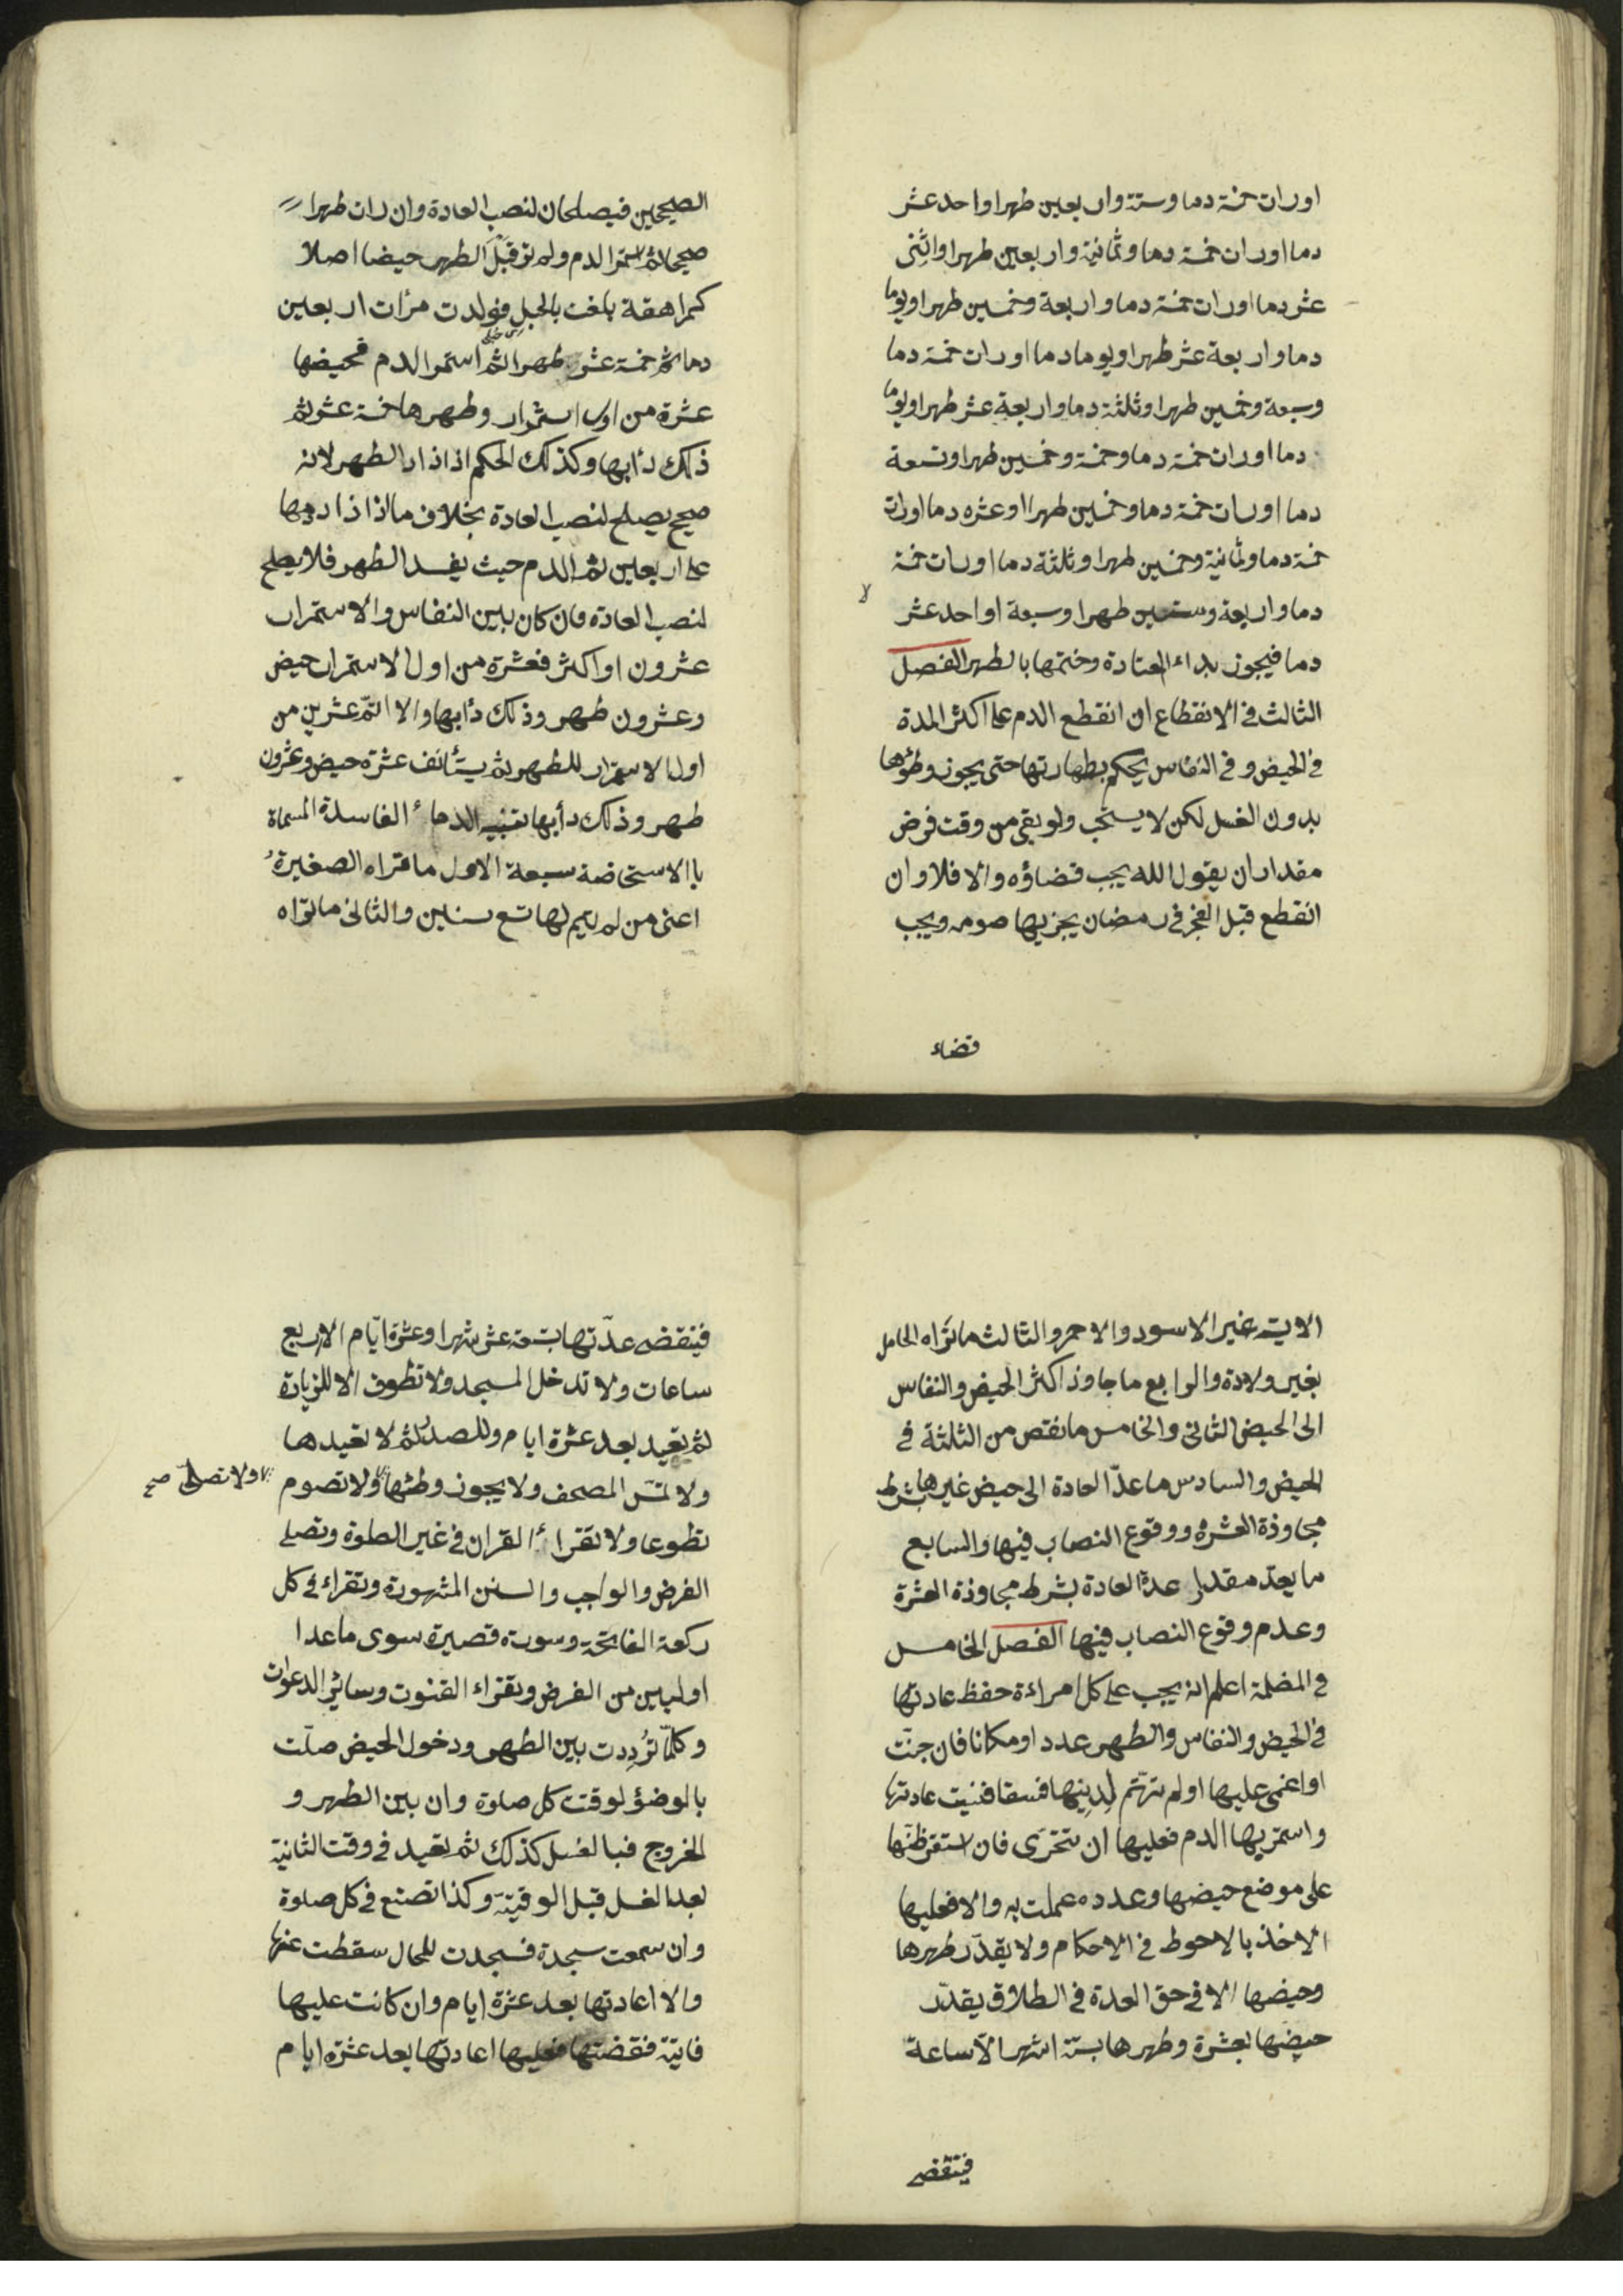 اورات خمسة دما وستة واربعين طهرا واحد عشر
دما اورات خمسة دما وثمانية واربعين طهرا واثنى
عشر دما اورات خمسة دما واربعة وخمسين طهرا ويوما
دما واربعة عشر طهرا ويوما دما اورات خمسة دما
وسبعة وخمسين طهرا وثلثة دما واربعة عشر طهرا ويوما
دما اورات خمسة دما وخمسة وخمسين طهرا وتسعة
دما اورات خمسة دما وخمسين طهرا وعشره دما اورات
خمسة دما وثمانية وخمسين طهرا وثلثة دما اورات خمسة
دما واربعة وستين طهرا وسبعة او احد عشر
لا
دما فيجوز بداء المعتادة وختمها بالطهر الفصل
الثالث فى الانقطاع ان انقطع الدم على اكثر المدة
فى الحيض و فى النفاس يحكم بطهارتها حتى يجوز وطؤها
بدون الغسل لكن لا يستحب ولو بقى من وقت فرض
مقدار ان يقول الله يجب قضاؤه والا فلا وان
انقطع قبل الفجر فى رمضان يجزيها صومه ويجب
قضاء
الصحيحين فيصلحان لنصب العادة وان رات طهرا
صحيحا ثم استمر الدم ولم تر قبل الطهر حيضا اصلا
كمراهقة بلغت بالحبل فولدت مرات اربعين
دما ثم خمسة عشر طهرا ثم استمر الدم فحيضها
عشرة من اول استمرار وطهرها خمسة عشر ثم
ذلك دأبها وكذلك الحكم اذا زاد الطهر لانه
صحيح يصلح لنصب العادة بخلاف ما اذا زاد دمها
على اربعين ثم الدم حيث يفسد الطهر فلا يصلح
لنصب العادة فان كان بين النفاس والاستمرار
عشرون او اكثر فعشرة من اول الاستمرار حيض
وعشرون طهر وذلك دأبها والا اتم عشرين من
اول الاستمرار للطهر ثم يستأنف عشرة حيض وعشرون
طهر وذلك دأبها تنبيه الدماء الفاسدة المسماة
باالاستحاضة سبعة الاول ما تراه الصغيرة
اعنى من لم يتم لها تسع سنين والثانى ما تراه
الايسة غير الاسود والاحمر والثالث ما تراه الحامل
بغير ولادة والرابع ما جاوز اكثر الحيض والنفاس
الى الحيض الثانى والخامس ما نقص من الثلثة فى
الحيض والسادس ما عدا العادة الى حيض غيرها بشرط
مجاوزة العشرة ووقوع النصاب فيها والسابع
ما بعد مقدار عدة العادة بشرط مجاوزة العشرة
وعدم وقوع النصاب فيها الفصل الخامس
فى المضلة اعلم انه يجب على كل امراءة حفظ عادتها
فى الحيض والنفاس والطهر عددا ومكانا فان جنت
او اغمى عليها او لم تهتم لدينها فسقا فنسيت عادتها
واستمر بها الدم فعليها ان تتحرى فان استقر ظنها
على موضع حيضها وعدده عملت به والا فعليها
الاخذ بالاحوط فى الاحكام ولا يقدر طهرها
وحيضها الا فى حق العدة فى الطلاق يقدر
حيضها بعشرة وطهرها بستة اشهر الا ساعة
فتنقضى
فتنقضى عدتها بتسعة عشر شهرا وعشرة ايام الاربع
ساعات ولا تدخل المسجد ولا تطوف الا للزيارة
ثم تعيد بعد عشرة ايام وللصدر ثم لا تعيدها
ولا تمس المصحف ولا يجوز وطئها ولا تصوم
ولا تصلى صح
تطوعا ولا تقراء القران فى غير الصلوة وتصلى
الفرض والواجب والسنن المشهورة وتقراء فى كل
ركعة الفاتحة وسورة قصيرة سوى ما عدا
اوليين من الفرض وتقراء القنوت وسائر الدعوات
وكلما ترددت بين الطهر ودخول الحيض صلت
بالوضؤ لوقت كل صلوة وان بين الطهر و
الخروج فبالغسل كذلك ثم تعيد فى وقت الثانية
بعد الغسل قبل الوقتية وكذا تصنع فى كل صلوة
وان سمعت سجدة فسجدت للحال سقطت عنها
والا اعادتها بعد عشرة ايام وان كانت عليها
فايتة فقضتها فعليها اعادتها بعد عشرة ايام